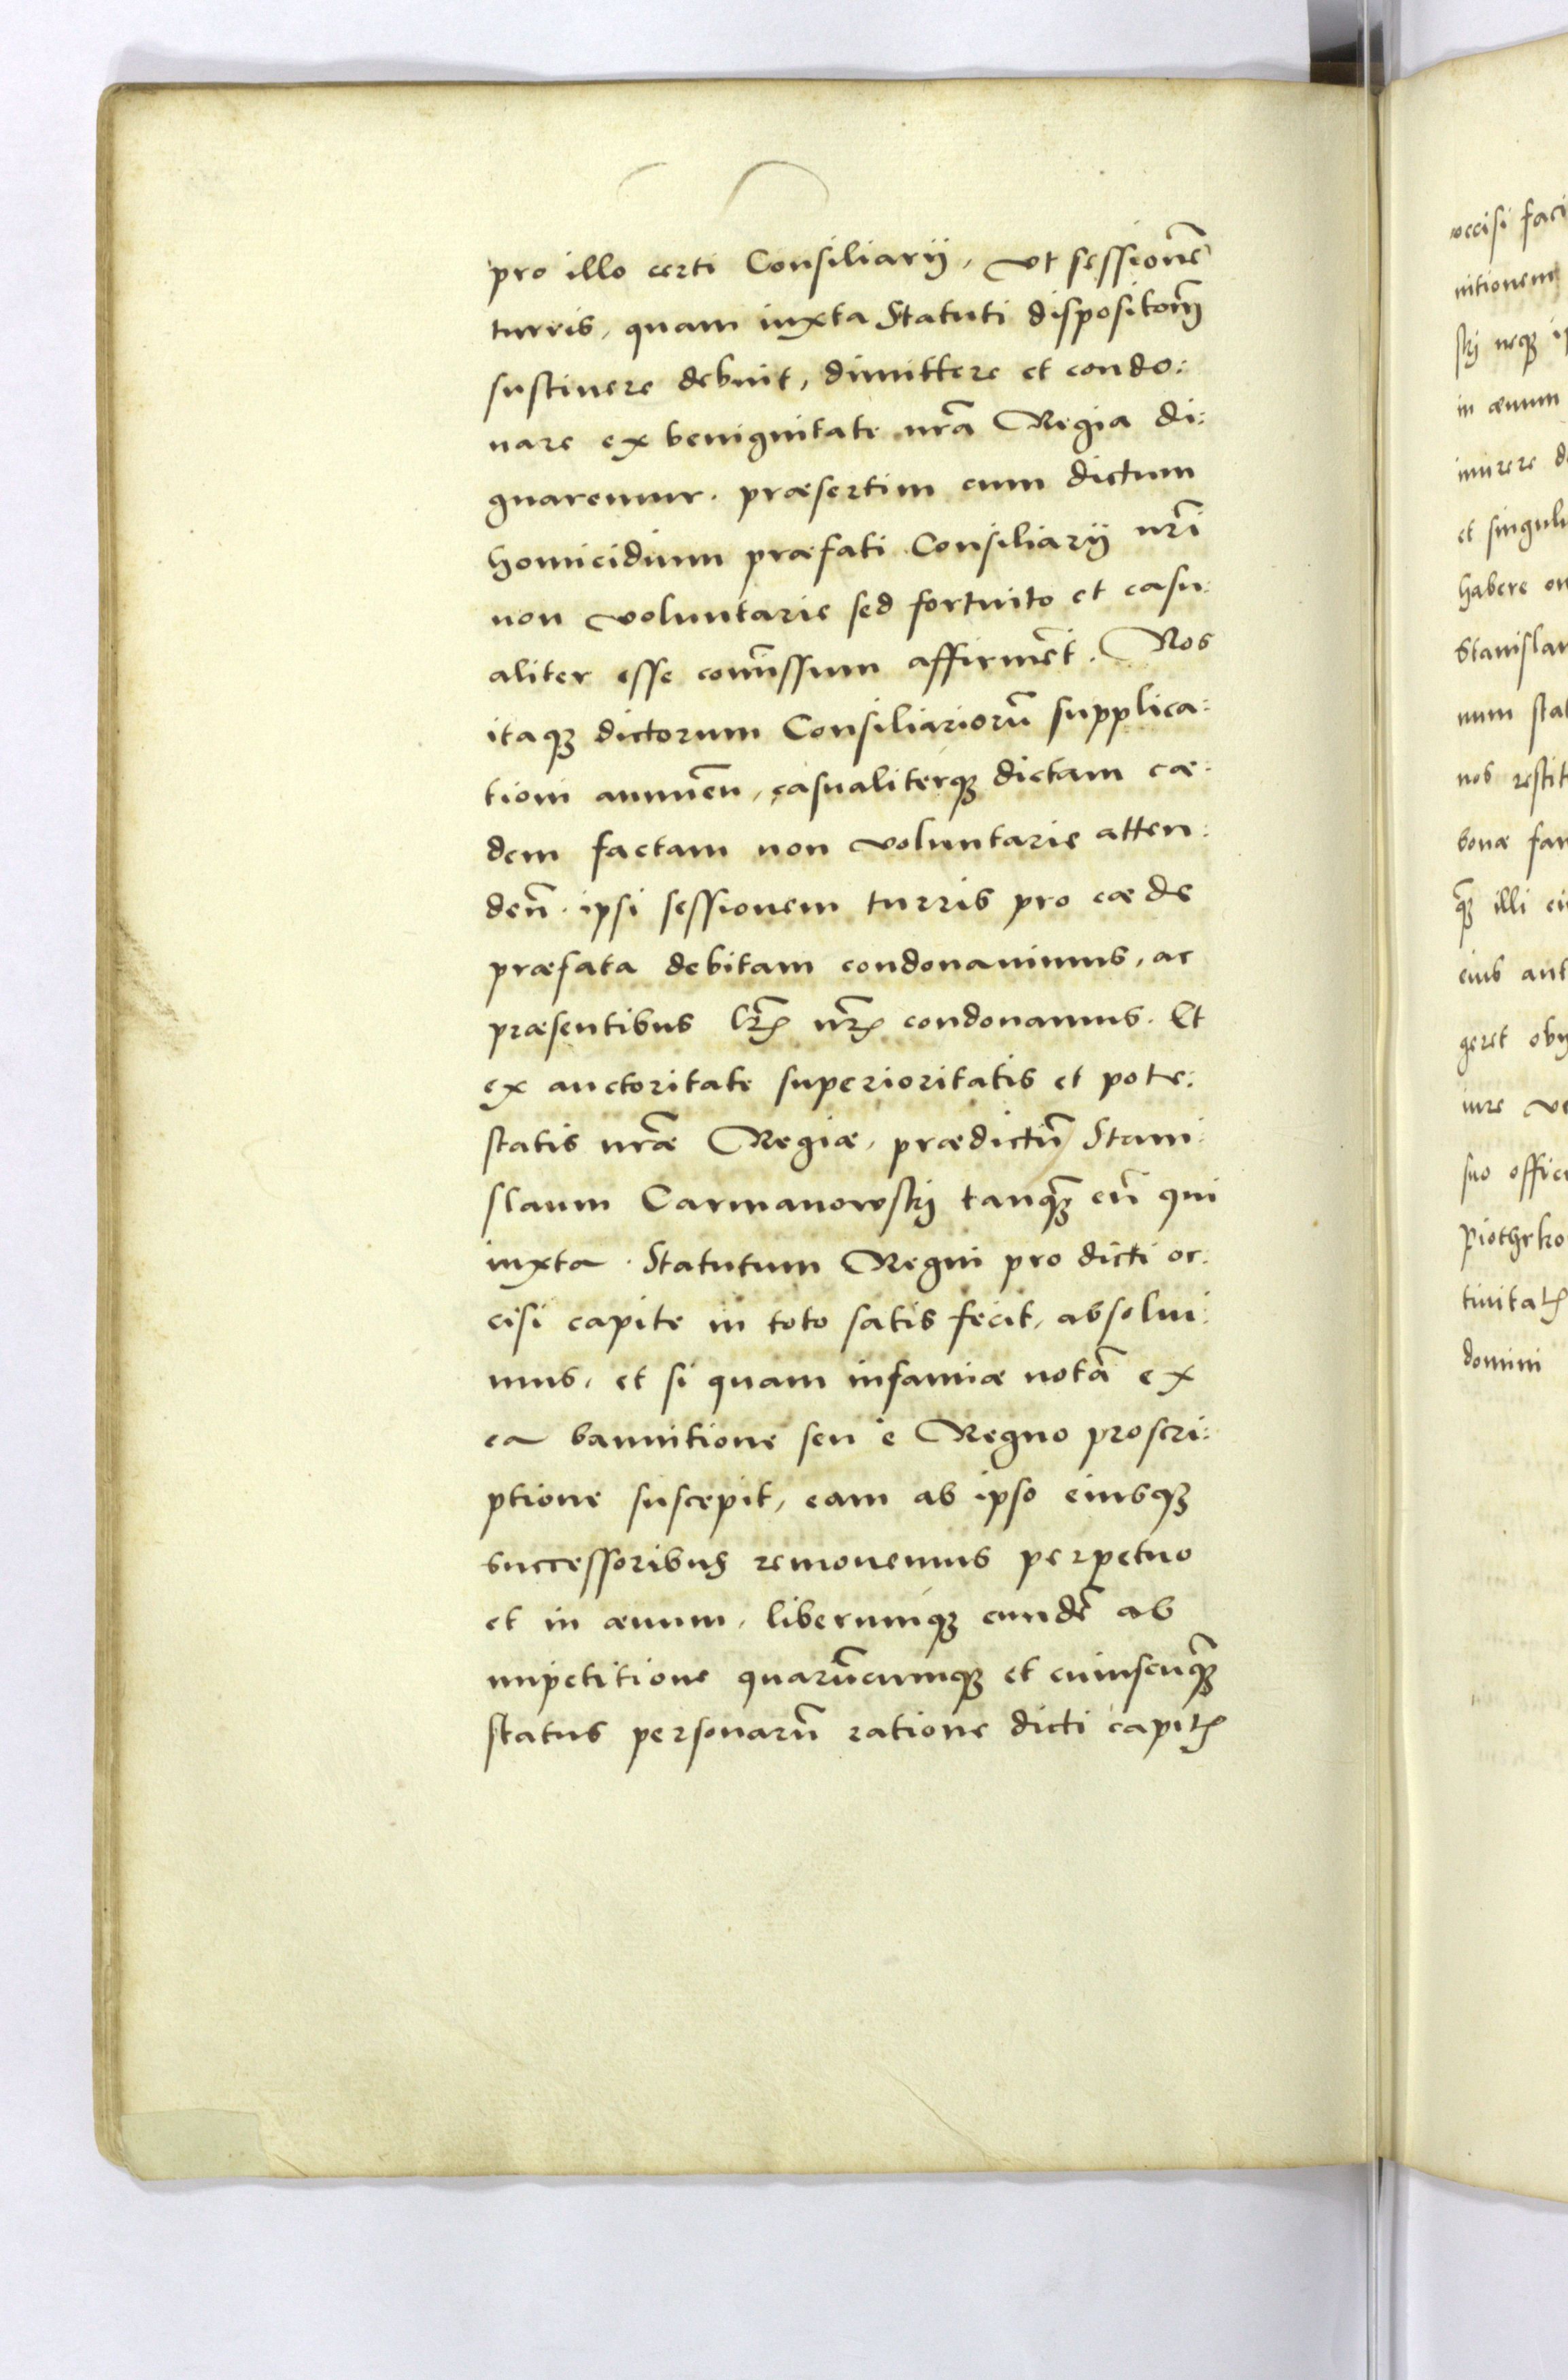 pro illo certi Consiliarij, vt sessionē
turris, quam iuxta Statuti dispositōm̄
sustinere debuit, dimittere et condo:
nare ex benignitate nr̄a Regia di:
gnaremur. præsertim cum dictum
homicidium præfati Consiliarij nr̄i
non voluntarie sed fortuito et casu:
aliter esse com̄issum affirmēt. Nos
itaqꝫ dictorum Consiliariorū supplica:
tioni annuēn, casualiterqꝫ dictam cæ:
dem factam non voluntarie atten:
den̄. ipsi sessionem turris pro cæde
præfata debitam condonauimus, ac
præsentibus lr̄ꝭ nr̄ꝭ condonamus. Et
ex auctoritate superioritatis et pote:
statis nr̄æ Regiæ, prædictū Stani:
slaum Carmanowskj tanqꝫ̄ eū qui
iuxta Statutum Regni pro dicti oc:
cisi capite in toto satis fecit, absolui:
mus, et si quam infamiæ notā ex
ea bannitione seu e Regno proscri:
ptione suscepit, eam ab ipso eiusqꝫ
successoribus remouemus perpetuo
et in æuum, liberumqꝫ eundē ab
impetitione quarūcumqꝫ et cuiuscuqꝫ̄
status personarū ratione dicti capitꝭ
occisi faci
nitionem
skj neqꝫ
in æuum
inurere
et singul
habere
Stanislau
num stat
nos restit
bonæ fam
qꝫ̄ illi
eius ant
geret
iure
suo offic
Piothrko
tiuitatꝭ
domini